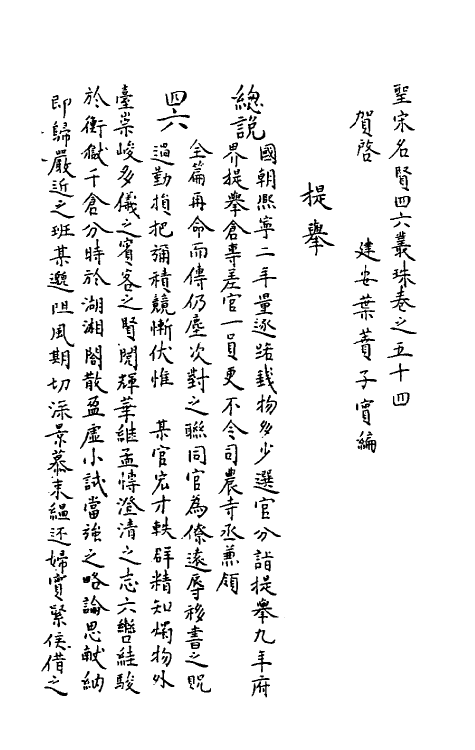 聖宋名賢四六叢珠卷之五十四
賀啓　建安葉蕡子實編
提舉
總說
國朝熙寧二年量逐路錢物多少選官分詣提舉九年府
界提舉倉專差官一員更不令司農寺丞兼領
四六
全篇再命而傳仍塵次對之聯同官為僚遠辱移書之貺
過勤撝把彌積兢慚伏惟　某官宏才軼群精知燭物外
臺崇峻多儀之賓客之賢閱輝華繼孟博澄清之志六轡絓駿
於衡嶽千倉分時於湖湘閣散盈虛小試當強之略論思獻納
即歸嚴近之班某邈阻風期切深景慕束緼还婦實緊侯借之